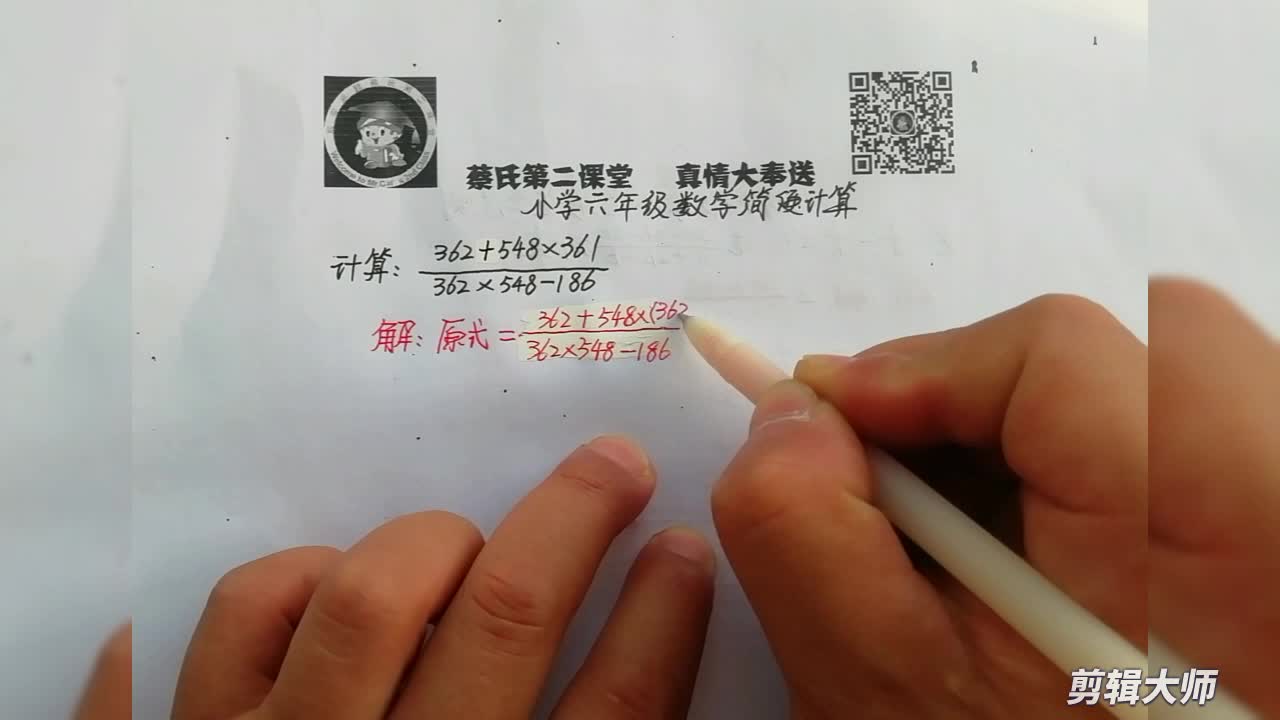 蔡氏第二课堂 真情大奉送
小学六年级数学简便计算
计算: 362+548×361
362×548-186
解: 原式= 362+548×(362
362×548-186
剪辑大师